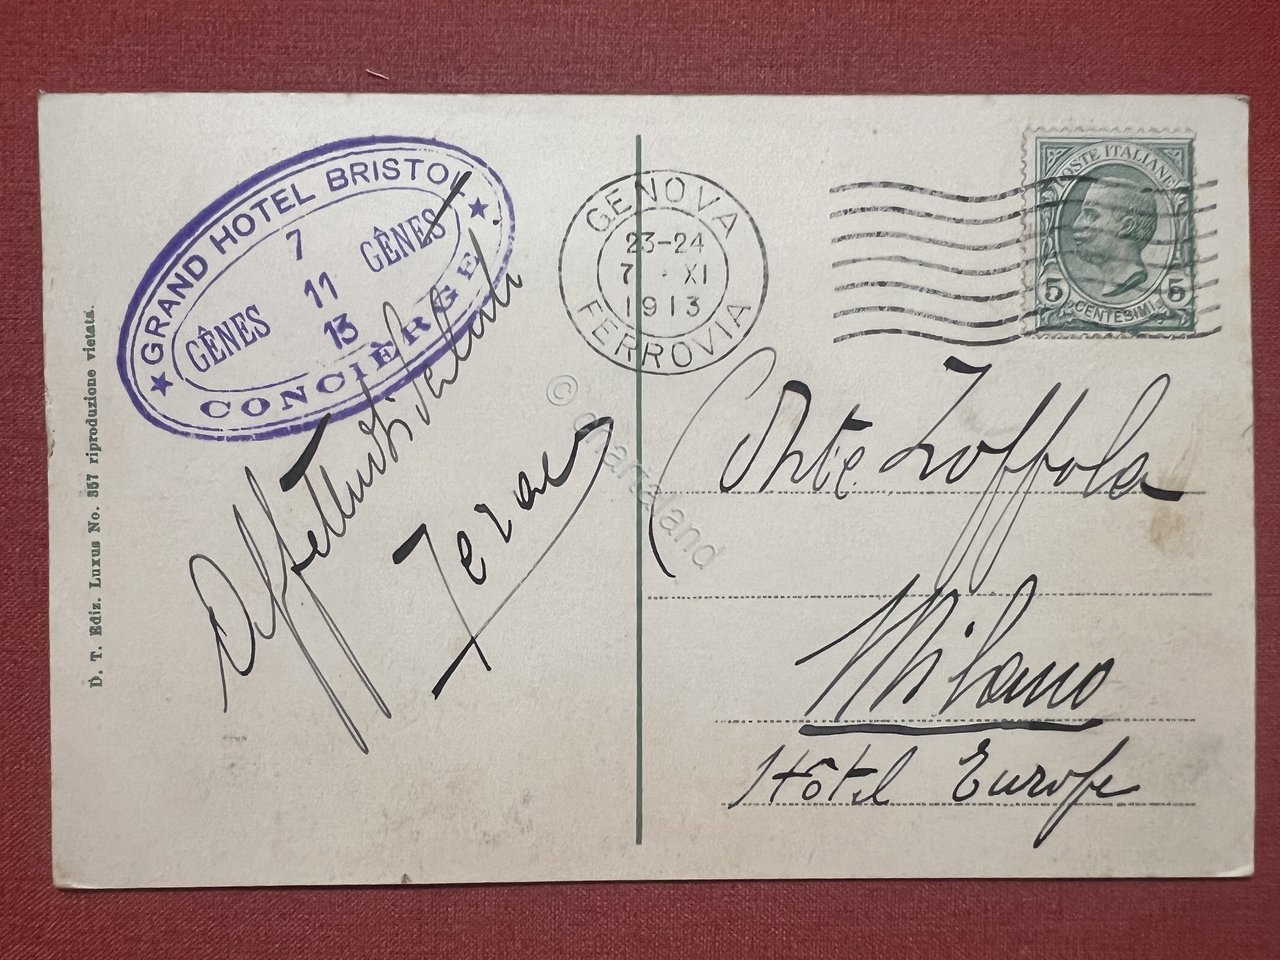 GRAND HOTEL BRISTOL
GÊNES 7 11 13 GÊNES
CONCIÈRGE
GENOVA
23-24
7 · XI
1913
FERROVIA
POSTE ITALIANE
5 CENTESIMI 5
Affettuosi saluti
Conte Zoffola
Milano
Hôtel Europe
D. T. Ediz. Luxus No. 357 riproduzione vietata.
© chartaland